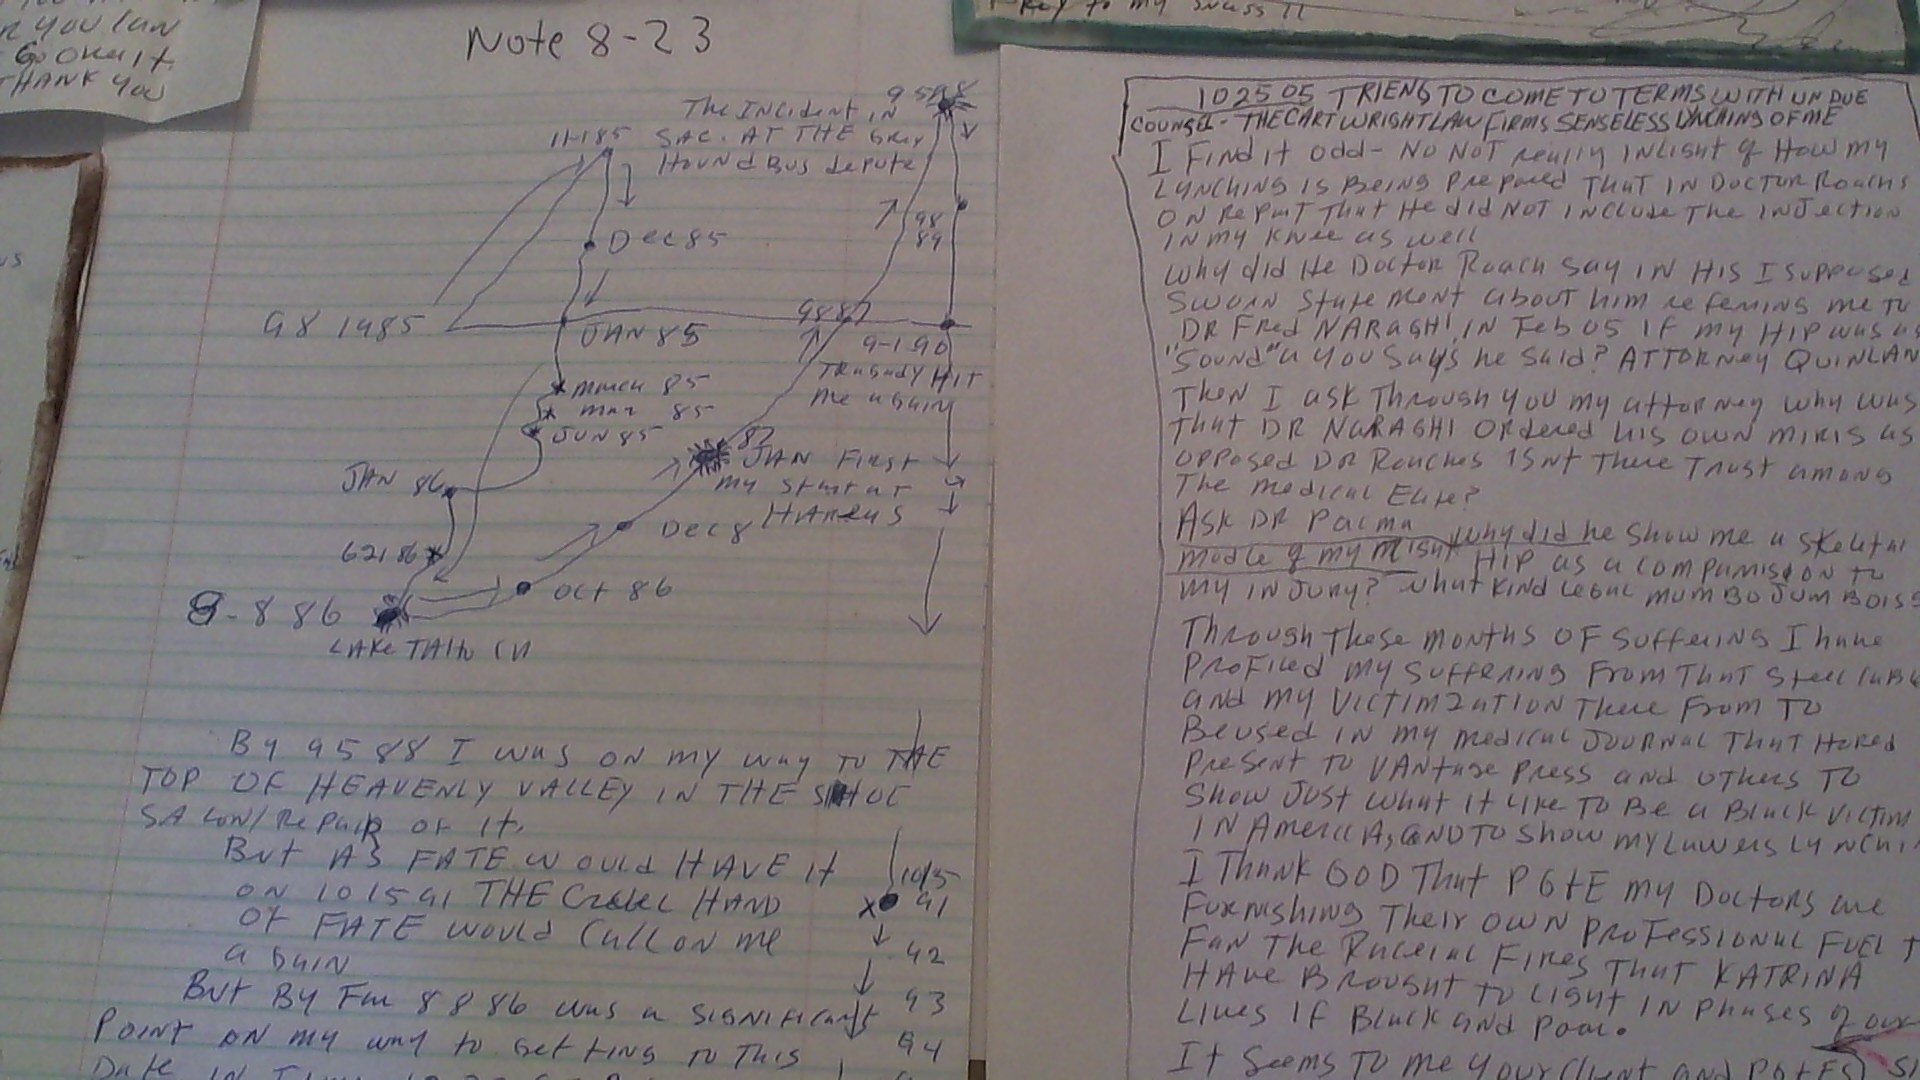 R YOU CAN
GO OVER IT
THANK YOU
Note 8-23
The INCIDENT IN
SAC. AT THE GREY
HOUND BUS DEPUTE
11-185
9 5 88
Dec 85
98
89
98 1985
JAN 85
9887
9-1 90
TRAGADY HIT
me again
MARCH 85
MAR 85
JUN 85
87
JAN FIRST
my START AT
HARRAHS
JAN 86
Dec 8
621 86
OCT 86
8-8 86
LAKE TAHO CA
By 9588 I was on my way to THE
TOP OF HEAVENLY VALLEY IN THE SHOE
SALON/REPAIR OF IT.
BUT AS FATE WOULD HAVE IT
ON 101591 THE CRUEL HAND
OF FATE WOULD CALL ON ME
AGAIN
BUT BY FAR 8886 was a SIGNIFICANT
POINT ON MY WAY TO GETTING TO THIS
DATE IN
10/15
91
92
93
94
Key to my
102505 TRIENG TO COME TO TERMS WITH UNDUE
COUNSEL - THE CARTWRIGHT LAW FIRMS SENSELESS LYNCHING OF ME
I FIND IT ODD - NO NOT really IN LIGHT of How my
LYNCHING IS BEING PREPARED THAT IN DOCTOR ROACHS
ON REPORT THAT HE DID NOT INCLUDE THE INJECTION
IN my KNEE as well
Why did He DOCTOR ROACH SAY IN HIS I SUPPOSED
SWORN STATEMENT about him refering me to
DR FRED NARAGHI IN FEB 05 IF my HIP was as
"SOUND" as YOU SAYS he said? ATTORNEY QUINLAN
THEN I ask THROUGH YOU my attorney why was
THAT DR NARAGHI ORDERED HIS OWN MIRIS as
OPPOSED DR ROACHES ISNT THERE TRUST among
THE MEDICAL ELITE?
ASK DR PALMA why did he SHOW ME a SKELETAL
MODLE of my RIGHT HIP as a COMPARISION TO
my INJURY? what KIND LEGAL MUMBO JUMBO IS
THROUGH THESE MONTHS OF SUFFERING I have
PROFILED my SUFFERING FROM THAT STEEL CABLE
and my VICTIMZATION THERE FROM TO
BE USED IN my MEDICAL JOURNAL THAT
PRESENT TO VANTAGE PRESS and OTHERS TO
SHOW JUST WHAT IT LIKE TO BE a BLACK VICTIM
IN AMERICA, AND TO SHOW MY LAWERS LYNCHI
I THANK GOD THAT PG+E MY DOCTORS are
FURNISHING THEIR OWN PROFESSIONAL FUEL T
FAN THE RACEIAL FIRES THAT KATRINA
HAVE BROUGHT TO LIGHT IN PHASES of our
LIVES IF BLACK and POOR.
IT SEEMS TO ME YOUR CLIENT and PG+ES